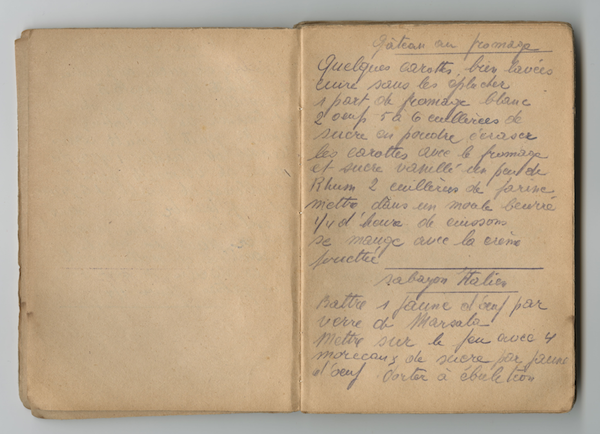 Gâteau au fromage
Quelques carottes, bien lavées
cuire sans les éplucher
1 part de fromage blanc
2 oeufs 5 à 6 cuillerées de
sucre en poudre, écraser
les carottes avec le fromage
et sucre vanillé un peu de
Rhum 2 cuillères de farine
mettre dans un moule beurré
1/4 d'heure de cuissons
se mange avec la crème
fouetté
sabayon Italien
Battre 1 jaune d'oeuf par
verre de Marsala
Mettre sur le feu avec 4
morceaux de sucre par jaune
d'oeuf Porter à ébulition